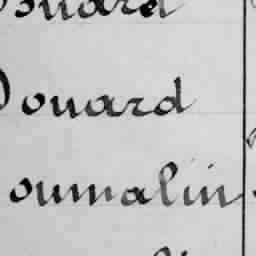 Douard
Douard
oumalin